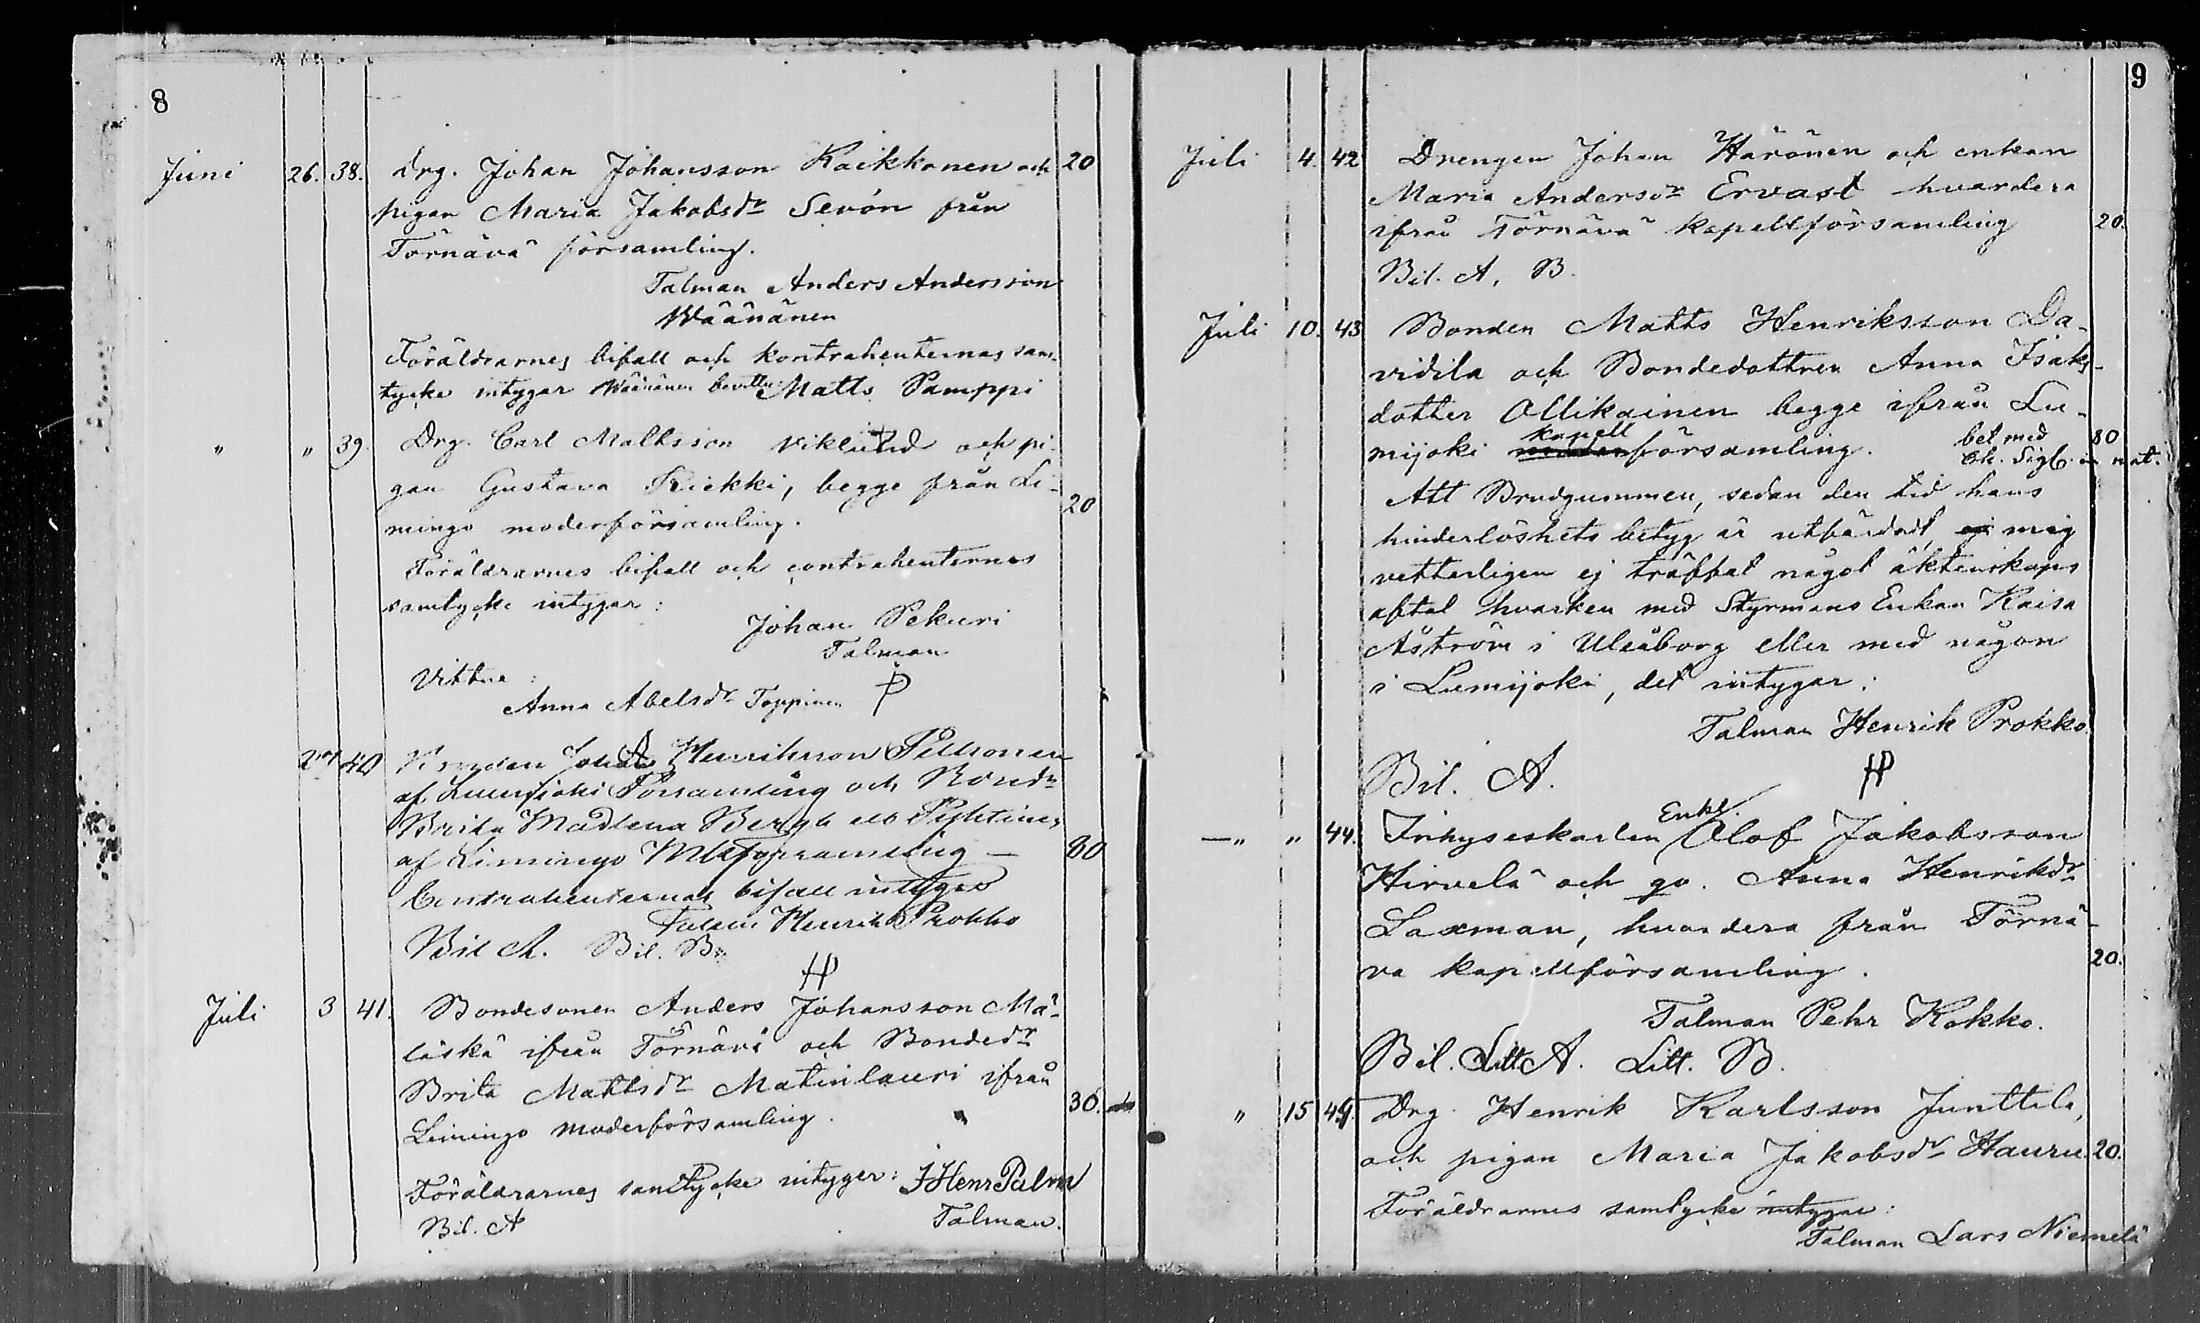 8
Juni 26. 38. Drg. Johan Johansson Kaikkonen och 20
pigan Maria Jakobsdr Sevón från
Törnävä församling.
Talman Anders Andersson
Wäänänen
Föräldrarnes bifall och kontrahenternas sam-
tycke intygar Wäänänen bevittn: Matts Pamppi
" " 39. Drg. Carl Mattsson Viklund och pi-
gan Gustava Kiekki, begge från Li-
mingo moderförsamling. 20
Föräldrarnes bifall och contrahenternas
samtycke intygar:
Johan Pekuri
Talman
Vittne:
Anna Abelsdr Toppinen P
40 Henriksson
af Lumijoki Församling och Bondr
Brita Madlena Bergh
af Limingo 80
Contrahenternas bifall intygar
Henrik Prokko
Bil A. Bil. B.
HP
Juli 3 41. Bondesonen Anders Johansson Mä-
läskä ifrån Törnävä och Bondedr
Brita Mattsdr Matinlauri ifrån
Limingo moderförsamling. 30.
Föräldrarnes samtycke intyger: J Henr Palm
Bil. A Talman.
9
Juli 4. 42 Drengen Johan Härönen och enkan
Maria Andersdr Ervast hvardera
ifrån Törnävä kapellförsamling 20.
Bil. A, B.
Juli 10. 43 Bonden Matts Henriksson Da-
vidila och Bondedottren Anna Isaks-
dotter Ollikainen begge ifrån Lu-
mijoki kapell församling. bet med 80
Att Brudgummen, sedan den tid hans
hinderlöshets betyg är utfärdadt, ej mig
vetterligen ej träffat något äktenskaps
aftal hvarken med Styrmans Enkan Kaisa
Åström i Uleåborg eller med någon
i Lumijoki, det intygar:
Talman Henrik Prokko.
Bil. A. HP
—" " 44. Inhyseskarlen Enkl. Olof Jakobsson
Hirvelä och qv. Anna Henriksdr
Laxman, hvardera från Törnä-
va kapellförsamling. 20.
Talman Pehr Kokko.
Bil. Litt A. Litt. B.
" 15 45. Drg. Henrik Karlsson Junttila,
och pigan Maria Jakobsdr Hauru 20.
Föräldrarnes samtycke intygar:
Talman Lars Niemelä